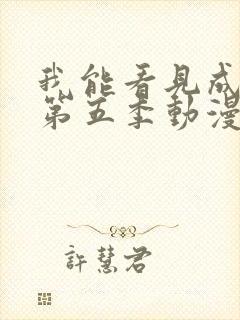 我能看見成
第五季動漫
許慧君